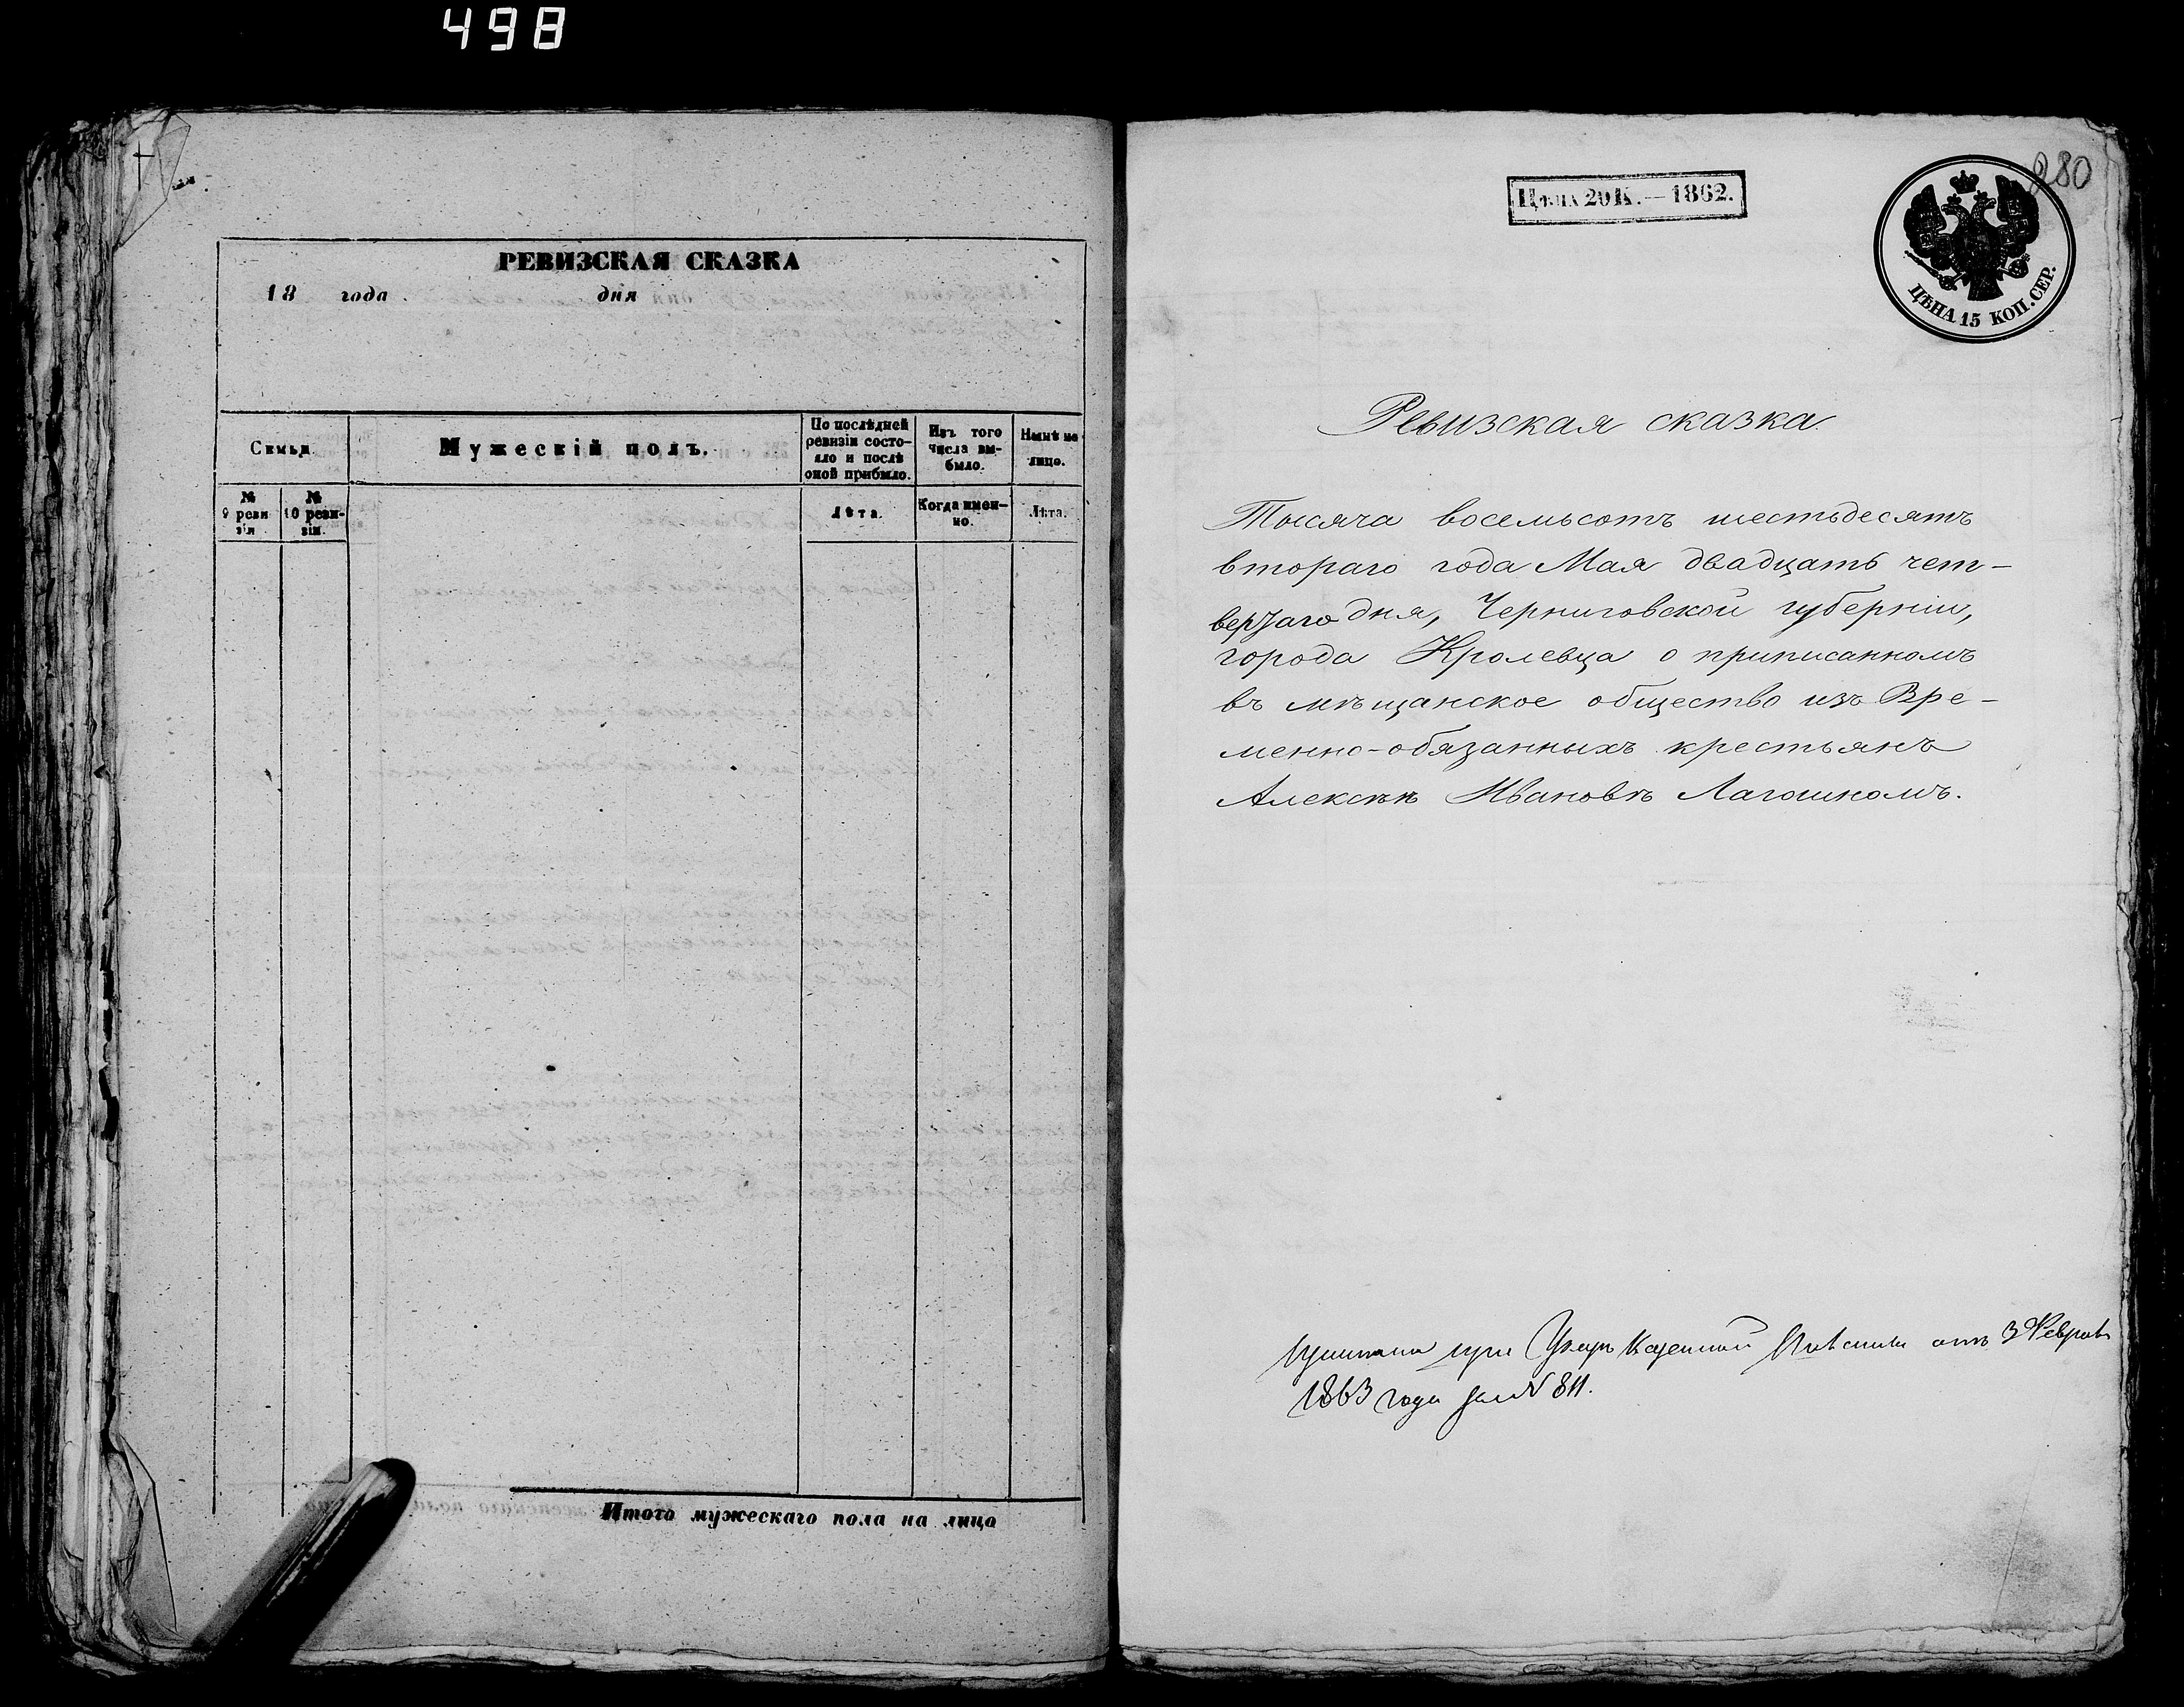 498
РЕВИЗСКАЯ СКАЗКА
18 года дня
Семьи.
Мужескій полъ.
По послѣдней ревизіи состояло и послѣ оной прибыло.
Изъ того числа выбыло.
Нынѣ на лицо.
№ 9 ревизіи
№ 10 ревизіи.
Лѣта.
Когда именно.
Лѣта.
Итого мужескаго пола на лицо
Цѣна 20 К.—1862.
280
ЦѢНА 15 КОП. СЕР.
Ревизская сказка.
Тысяча восемьсотъ шестьдесятъ
втораго года Мая двадцать чет-
вертаго дня, Черниговской губерніи,
города Кролевца о приписанномъ
въ мѣщанское общество изъ Вре-
менно-обязанныхъ крестьянъ
Алексѣѣ Ивановѣ Лагошномъ.
при Указѣ Казенной Палаты отъ 3 Февраля
1863 года за № 811.